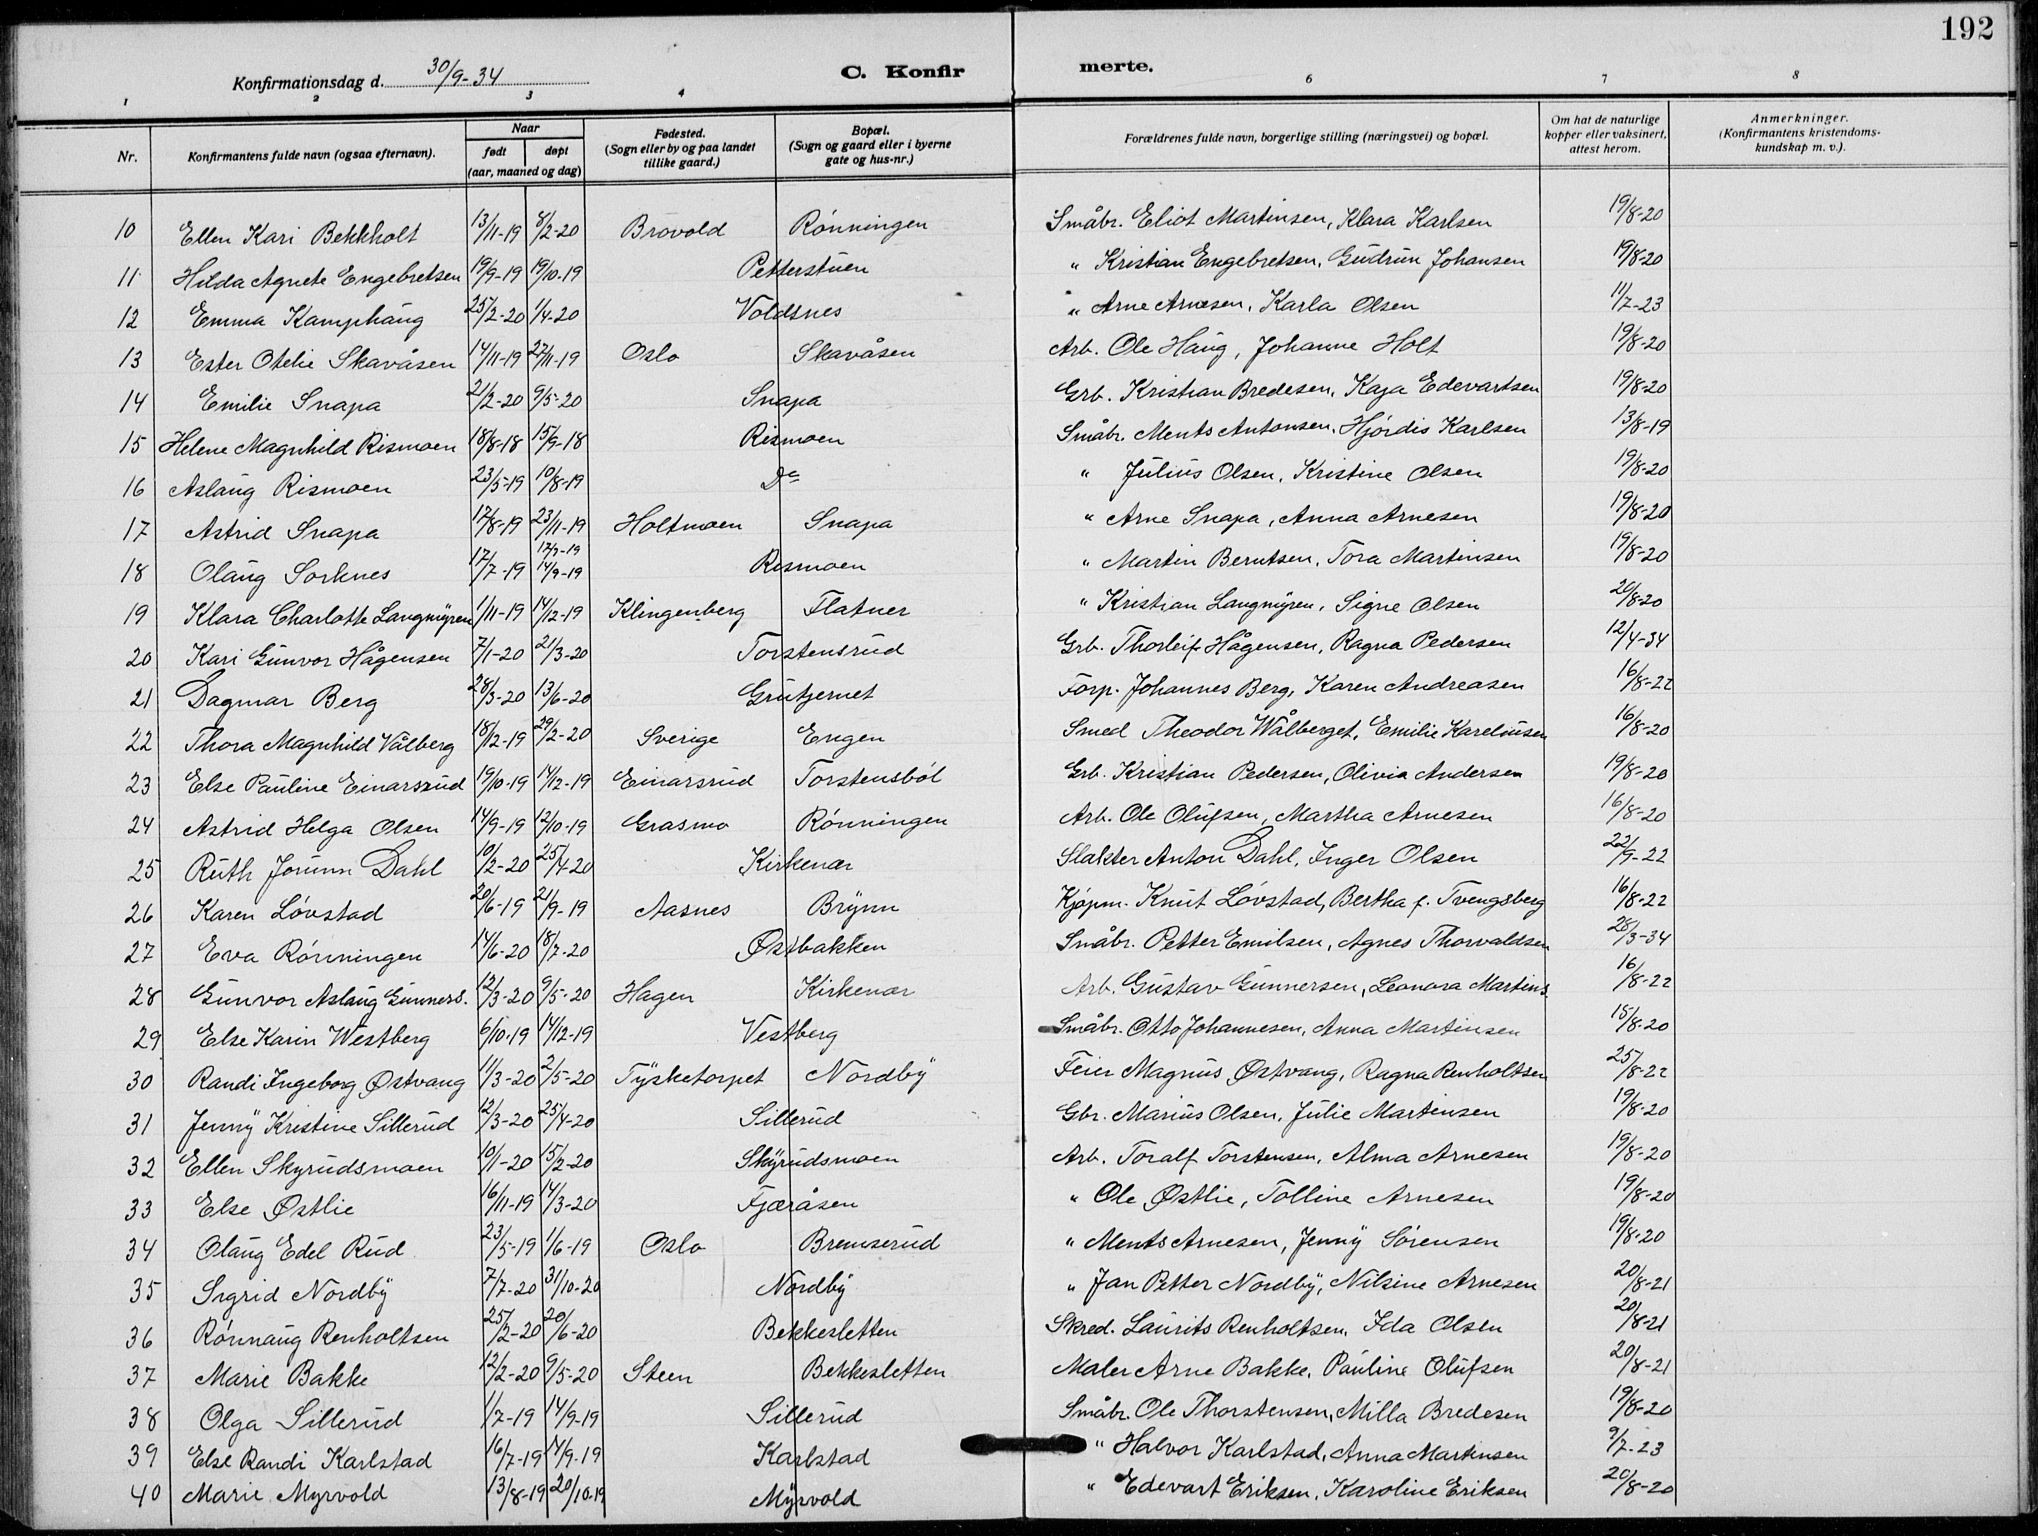 192
Konfirmationsdag d. 30/9-34
C. Konfir merte.
1 2 3 4 6 7 8
Nr. Konfirmantens fulde navn (ogsaa efternavn). Naar født døpt (aar, maaned og dag) Fødested. (Sogn eller by og paa landet tillike gaard.) Bopæl. (Sogn og gaard eller i byerne gate og hus-nr.) Forældrenes fulde navn, borgerlige stilling (næringsvei) og bopæl. Om hat de naturlige kopper eller vaksinert, attest herom. Anmerkninger. (Konfirmantens kristendoms-kundskap m. v.).
10 Ellen Kari Bekkholt 13/11-19 8/2-20 Brovold Rönningen Småbr. Eliot Martinsen, Klara Karlsen 19/8-20
11 Hilda Agnete Engebretsen 19/9-19 19/10-19 Petterstuen " Kristian Engebretsen, Gudrun Johansen 19/8-20
12 Emma Kamphaug 25/2-20 1/4-20 Voldsnes " Arne Arnesen, Karla Olsen 11/7-23
13 Ester Otelie Skavåsen 14/11-19 27/11-19 Oslo Skavåsen Arb. Ole Haug, Johanne Holt 19/8-20
14 Emilie Snapa 2/2-20 9/5-20 Snapa Grb. Kristian Bredesen, Kaja Edevartsen 19/8-20
15 Helene Magnhild Rismoen 18/8-18 15/9-18 Rismoen Småbr. Ments Antonsen, Hjördis Karlsen 13/8-19
16 Aslaug Rismoen 23/5-19 10/8-19 Do " Julius Olsen, Kristine Olsen 19/8-20
17 Astrid Snapa 17/8-19 23/11-19 Holtmoen Snapa " Arne Snapa, Anna Arnesen 19/8-20
18 Olaug Sorknes 17/7-19 17/7-19 14/9-19 Rismoen " Martin Berntsen, Tora Martinsen 19/8-20
19 Klara Charlotte Langmyren 1/11-19 14/12-19 Klingenberg Flatner " Kristian Langmyren, Signe Olsen 20/8-20
20 Kari Gunvor Hågensen 7/1-20 21/3-20 Torstensrud Grb. Thorleif Hågensen, Ragna Pedersen 12/4-34
21 Dagmar Berg 28/3-20 13/6-20 Grutjernet Forp. Johannes Berg, Karen Andreasen 16/8-22
22 Thora Magnhild Vålberg 18/12-19 29/2-20 Sverige Engen Smed Theodor Wålberget, Emilie Kareliusen 16/8-20
23 Else Pauline Einarsrud 19/10-19 14/12-19 Einarsrud Torstensböl Grb. Kristian Pedersen, Olivia Andersen 19/8-20
24 Astrid Helga Olsen 14/9-19 12/10-19 Grasmo Rönningen Arb. Ole Olufsen, Martha Arnesen 16/8-20
25 Ruth Jorunn Dahl 10/2-20 25/4-20 Kirkenær Slakter Anton Dahl, Inger Olsen 22/9-22
26 Karen Lövstad 20/6-19 21/9-19 Aasnes Brynn Kjøpm. Knut Lövstad, Bertha f. Tvengsberg 16/8-22
27 Eva Rönningen 14/6-20 18/7-20 Østbakken Småbr. Petter Emilsen, Agnes Thorvaldsen 28/3-34
28 Gunvor Aslaug Gunners. 12/3-20 9/5-20 Hagen Kirkenær Arb. Gustav Gunnersen, Leonora Martins. 16/8-22
29 Else Karin Westberg 6/10-19 14/12-19 Vestberg Småbr. Otto Johannesen, Anna Martinsen 15/8-20
30 Randi Ingeborg Østvang 11/3-20 2/5-20 Tysketorpet Nordby Feier Magnus Østvang, Ragna Renholtsen 25/8-22
31 Jenny Kristine Sillerud 12/3-20 25/4-20 Sillerud Gbr. Marius Olsen, Julie Martinsen 19/8-20
32 Ellen Skyrudsmoen 10/1-20 15/2-20 Skyrudsmoen Arb. Toralf Torstensen, Alma Arnesen 19/8-20
33 Else Østlie 16/11-19 14/3-20 Fjæråsen " Ole Østlie, Tolline Arnesen 19/8-20
34 Olaug Edel Rud 23/5-19 1/6-19 Oslo Bremserud " Ments Arnesen, Jenny Sörensen 19/8-20
35 Sigrid Nordby 7/7-20 31/10-20 Nordby " Jan Petter Nordby, Nilsine Arnesen 20/8-21
36 Rönnaug Renholtsen 25/2-20 20/6-20 Bekkesletten Skred. Laurits Renholtsen, Ida Olsen 20/8-21
37 Marie Bakke 12/2-20 9/5-20 Steen Bekkesletten Maler Arne Bakke, Pauline Olufsen 20/8-21
38 Olga Sillerud 1/7-19 14/9-19 Sillerud Småbr. Ole Thorstensen, Milla Bredesen 19/8-20
39 Else Randi Karlstad 16/7-19 14/9-19 Karlstad " Halvor Karlstad, Anna Martinsen 9/7-23
40 Marie Myrvold 13/8-19 20/10-19 Myrvold " Edevart Eriksen, Karoline Eriksen 20/8-20